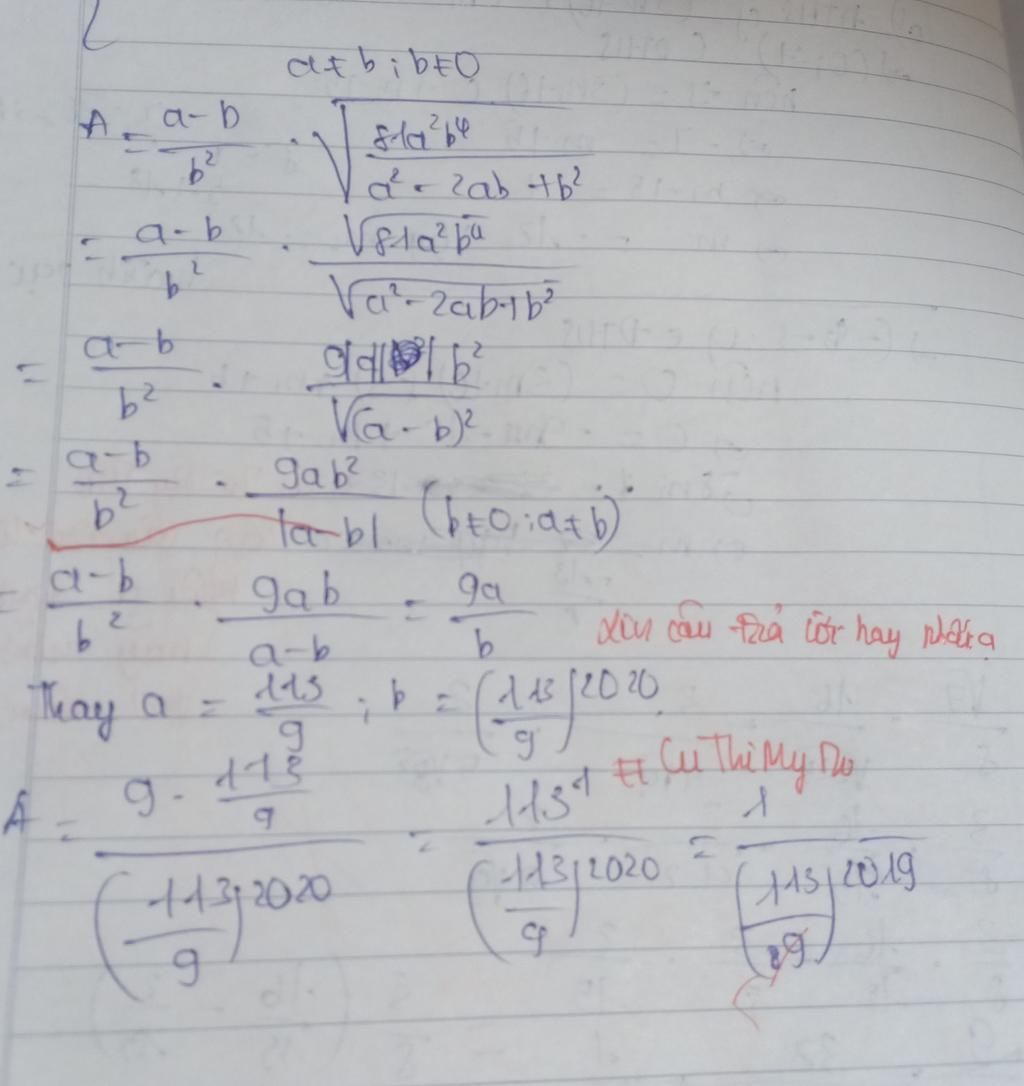 a ≠ b ; b ≠ 0
A = \frac{a-b}{b^2} \cdot \sqrt{\frac{81a^2b^4}{a^2-2ab+b^2}}
= \frac{a-b}{b^2} \cdot \frac{\sqrt{81a^2b^4}}{\sqrt{a^2-2ab+b^2}}
= \frac{a-b}{b^2} \cdot \frac{9|a| b^2}{\sqrt{(a-b)^2}}
= \frac{a-b}{b^2} \cdot \frac{9ab^2}{|a-b|} (b ≠ 0 ; a ≠ b)
= \frac{a-b}{b^2} \cdot \frac{9ab}{a-b} = \frac{9a}{b}
xin câu trả lời hay nhất ạ
Thay a = \frac{113}{9} ; b = \left(\frac{113}{9}\right)^{2020}
# CuThiMy
A = \frac{9 \cdot \frac{113}{9}}{\left(\frac{113}{9}\right)^{2020}} = \frac{113^1}{\left(\frac{113}{9}\right)^{2020}} = \frac{1}{\left(\frac{113}{9}\right)^{2019}}